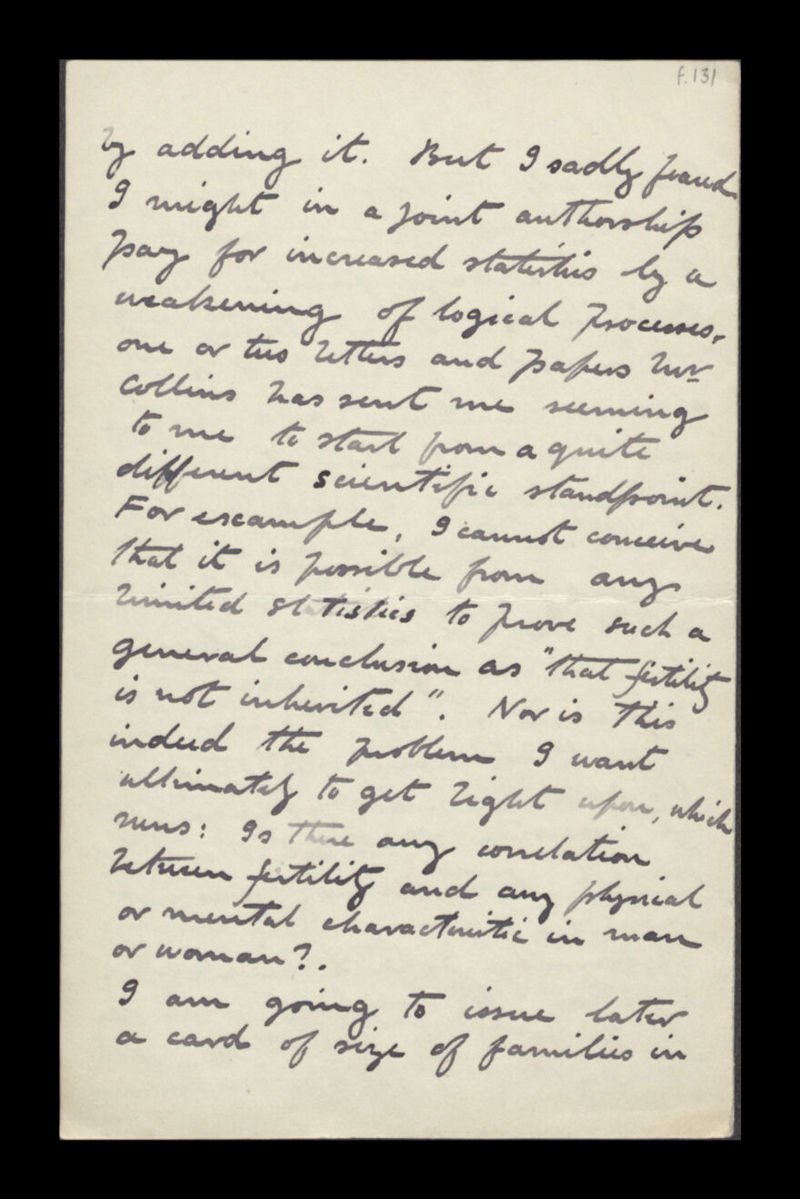 f.131
by adding it. But I sadly feared
I might in a joint authorship
pay for increased statistics by a
weakening of logical processes,
one or two letters and papers Mr
Collins has sent me seeming
to me to start from a quite
different scientific standpoint.
For example, I cannot conceive
that it is possible from any
limited statistics to prove such a
general conclusion as "that fertility
is not inherited". Nor is this
indeed the problem I want
ultimately to get light upon, which
runs: Is there any correlation
between fertility and any physical
or mental characteristic in man
or woman?.
I am going to issue later
a card of size of families in